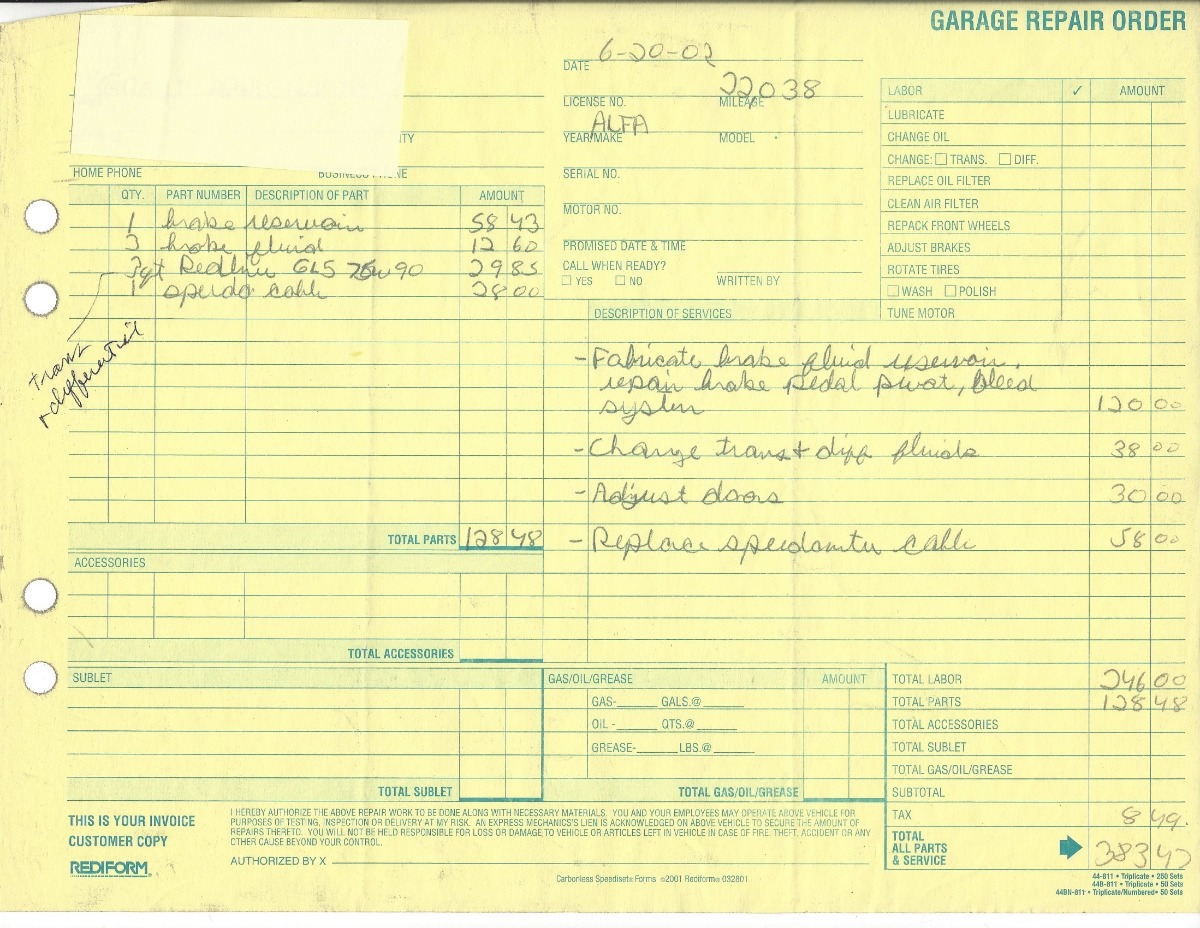 GARAGE REPAIR ORDER
DATE 6-20-02
22,038
LICENSE NO. MILEAGE
ALFA
YEAR/MAKE MODEL
HOME PHONE
SERIAL NO.
MOTOR NO.
PROMISED DATE & TIME
CALL WHEN READY?
☐ YES ☐ NO WRITTEN BY
LABOR ✓ AMOUNT
LUBRICATE
CHANGE OIL
CHANGE: ☐ TRANS. ☐ DIFF.
REPLACE OIL FILTER
CLEAN AIR FILTER
REPACK FRONT WHEELS
ADJUST BRAKES
ROTATE TIRES
☐ WASH ☐ POLISH
TUNE MOTOR
QTY. PART NUMBER DESCRIPTION OF PART AMOUNT
1 brake reservoir 58 43
3 brake fluid 12 60
3qt Redline GL5 75w90 29 85
1 speedo cable 28 00
trans
+ differential
TOTAL PARTS 128 48
DESCRIPTION OF SERVICES
- Fabricate brake fluid reservoir,
repair brake pedal pivot, bleed
system 120 00
- Change trans + diff fluids 38 00
- Adjust doors 30 00
- Replace speedometer cable 58 00
ACCESSORIES
TOTAL ACCESSORIES
SUBLET
TOTAL SUBLET
GAS/OIL/GREASE AMOUNT
GAS-______ GALS.@______
OIL -______ QTS.@______
GREASE-______LBS.@______
TOTAL GAS/OIL/GREASE
TOTAL LABOR 246 00
TOTAL PARTS 128 48
TOTAL ACCESSORIES
TOTAL SUBLET
TOTAL GAS/OIL/GREASE
SUBTOTAL
TAX 8 99
TOTAL
ALL PARTS
& SERVICE 383 47
THIS IS YOUR INVOICE
CUSTOMER COPY
REDIFORM®
I HEREBY AUTHORIZE THE ABOVE REPAIR WORK TO BE DONE ALONG WITH NECESSARY MATERIALS. YOU AND YOUR EMPLOYEES MAY OPERATE ABOVE VEHICLE FOR
PURPOSES OF TESTING, INSPECTION OR DELIVERY AT MY RISK. AN EXPRESS MECHANICS'S LIEN IS ACKNOWLEDGED ON ABOVE VEHICLE TO SECURE THE AMOUNT OF
REPAIRS THERETO. YOU WILL NOT BE HELD RESPONSIBLE FOR LOSS OR DAMAGE TO VEHICLE OR ARTICLES LEFT IN VEHICLE IN CASE OF FIRE, THEFT, ACCIDENT OR ANY
OTHER CAUSE BEYOND YOUR CONTROL.
AUTHORIZED BY X
Carbonless Speediset® Forms ©2001 Rediform® 032801
44-811 • Triplicate • 250 Sets
44B-811 • Triplicate • 50 Sets
44BN-811 • Triplicate/Numbered • 50 Sets